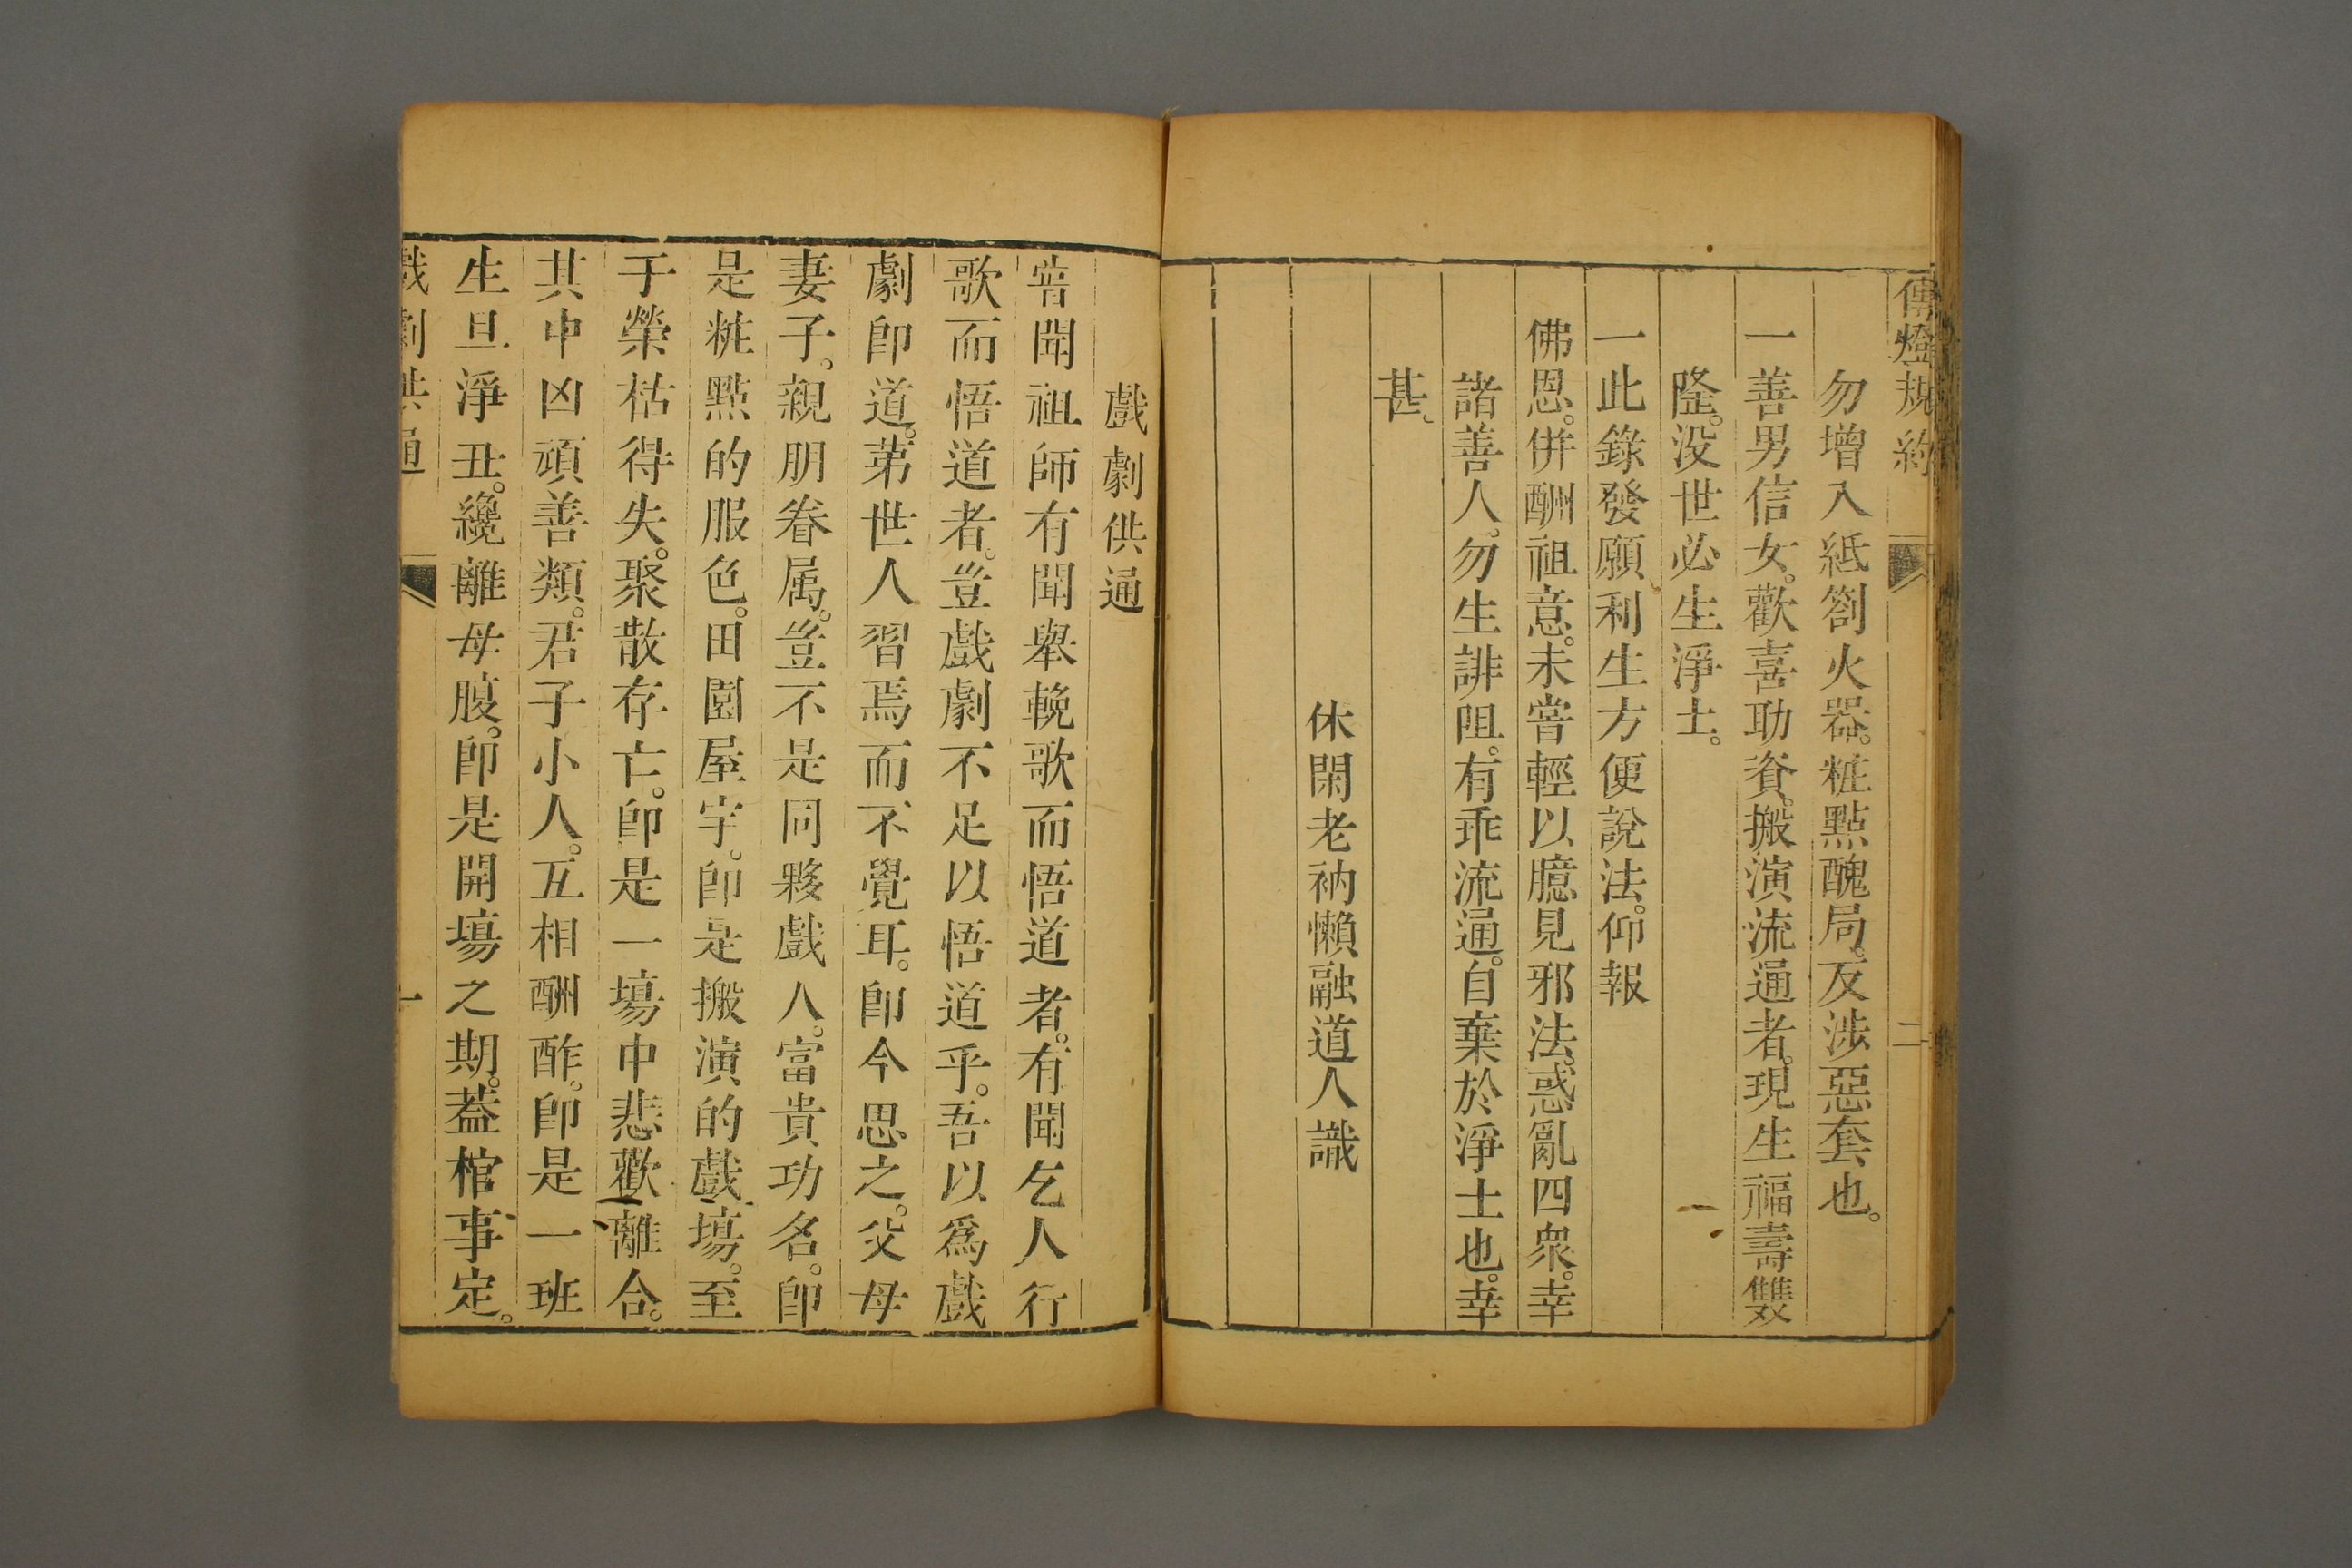 傳燈規約
二
勿增入紙劄火器。粧點醜局。反涉惡套也。
一善男信女。歡喜助資。搬演流通者。現生福壽雙
隆。没世必生淨土。
一此錄發願利生方便說法。仰報
佛恩。併酬祖意。未嘗輕以臆見邪法。惑亂四衆。幸
諸善人。勿生誹阻。有乖流通。自棄於淨土也。幸
甚。
休閑老衲懶融道人識
戲劇供通
嘗聞祖師有聞舉輓歌而悟道者。有聞乞人行
歌而悟道者。豈戲劇不足以悟道乎。吾以爲戲
劇卽道。第世人習焉而不覺耳。卽今思之。父母
妻子。親朋眷属。豈不是同夥戲人。富貴功名。卽
是粧點的服色。田園屋宇。卽是搬演的戲塲。至
于榮枯得失。聚散存亡。卽是一塲中悲歡離合。
其中凶頑善類。君子小人。互相酬酢。卽是一班
生旦淨丑。纔離母腹。卽是開塲之期。葢棺事定。
戲劇供通
一